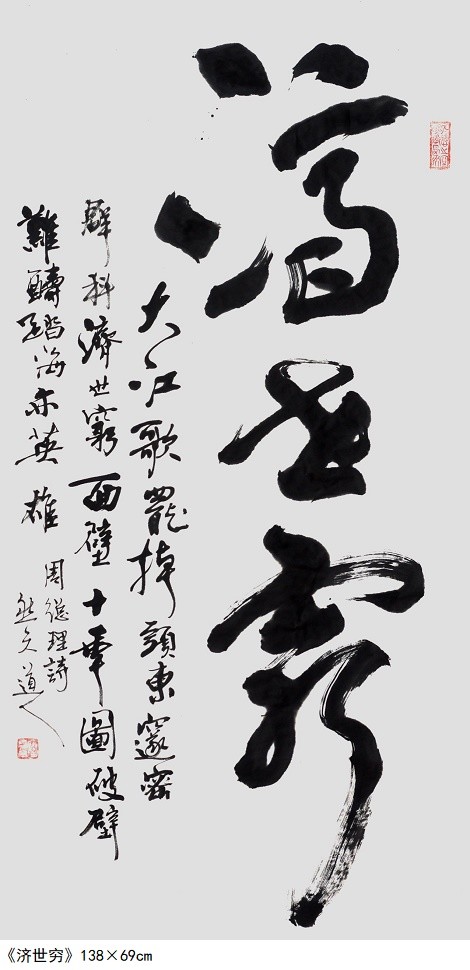 濟世窮
大江歌罷掉頭東邃密
群科濟世窮面壁十年圖破壁
難醻蹈海亦英雄
周總理詩
道人
《济世穷》138×69cm